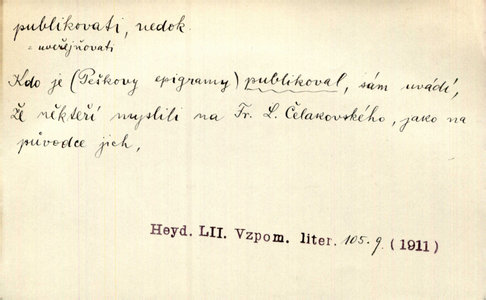 publikovati, nedok.
= uveřejňovati
Kdo je (Peškovy epigramy) publikoval, sám uvádí,
že někteří myslili na Fr. L. Čelakovského, jako na
původce jich,
Heyd. LII. Vzpom. liter. 105. 9. (1911)